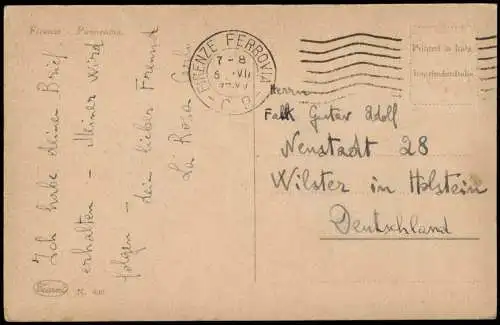 Firenze - Panorama
Ich habe deinen Brief
erhalten - Meiner wird
folgen - dein lieber Freund
FIRENZE FERROVIA
7-8
VII
Printed in Italy
Imprimé en Italie
Herrn
Falk Gustav Adolf
Neustadt 28
Wilster in Holstein
Deutschland